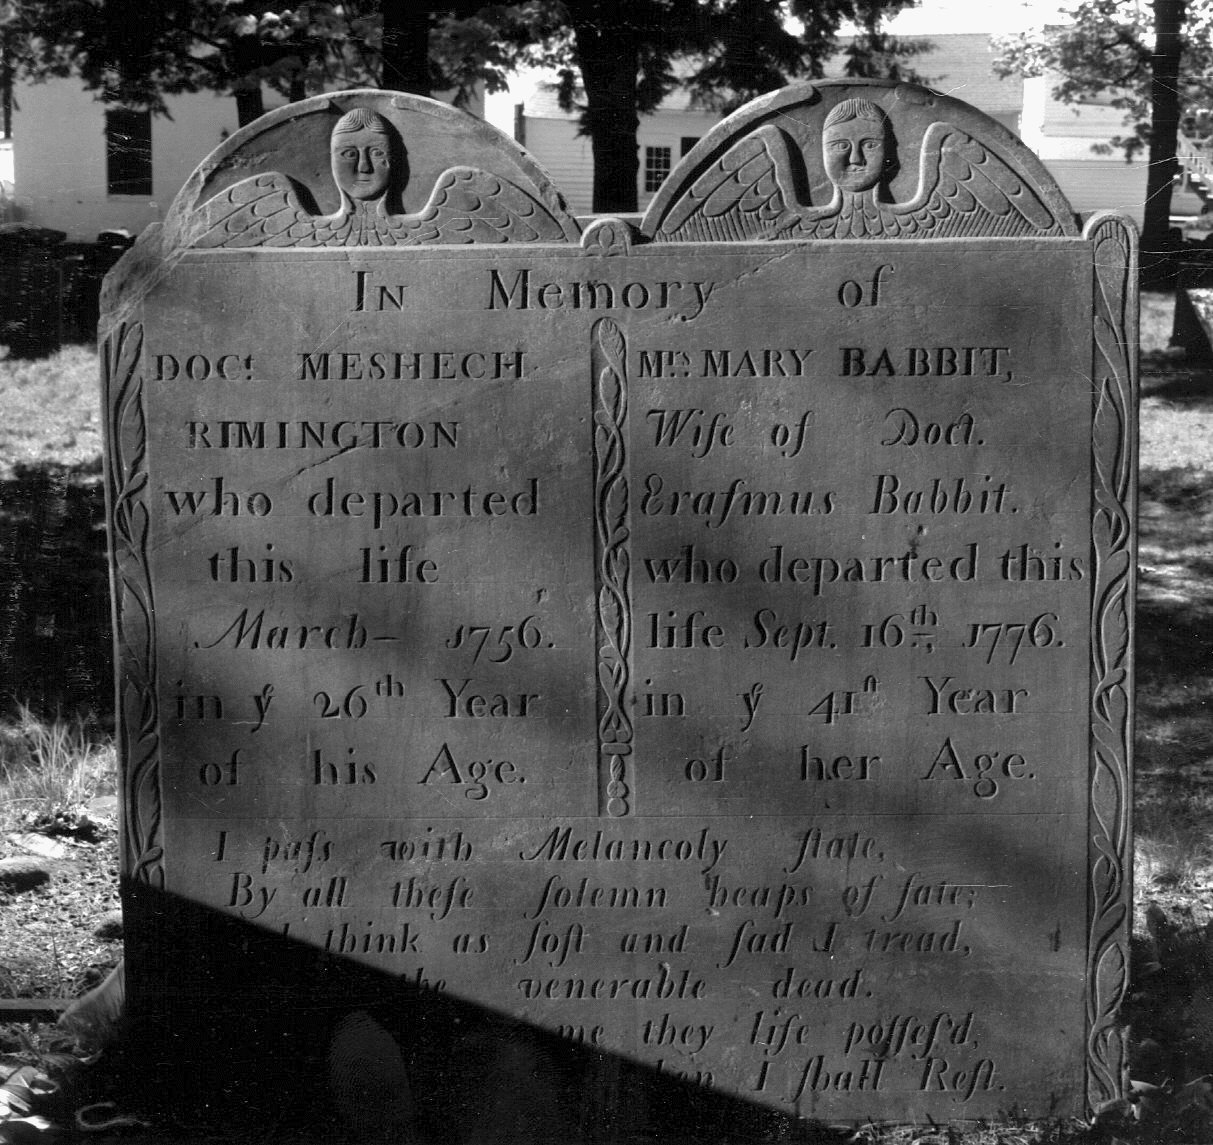 In Memory of
DOCt. MESHECH
RIMINGTON
who departed
this life
March— 1756.
in ye 26th Year
of his Age.
Mrs. MARY BABBIT,
Wife of Doct.
Eraſmus Babbit.
who departed this
life Sept. 16th, 1776.
in ye 41ſt Year
of her Age.
I paſs with Melancoly ſtate,
By all theſe ſolemn heaps of fate;
think as ſoft and ſad I tread,
the venerable dead.
me they life poſſeſs'd,
I ſhall Reſt.